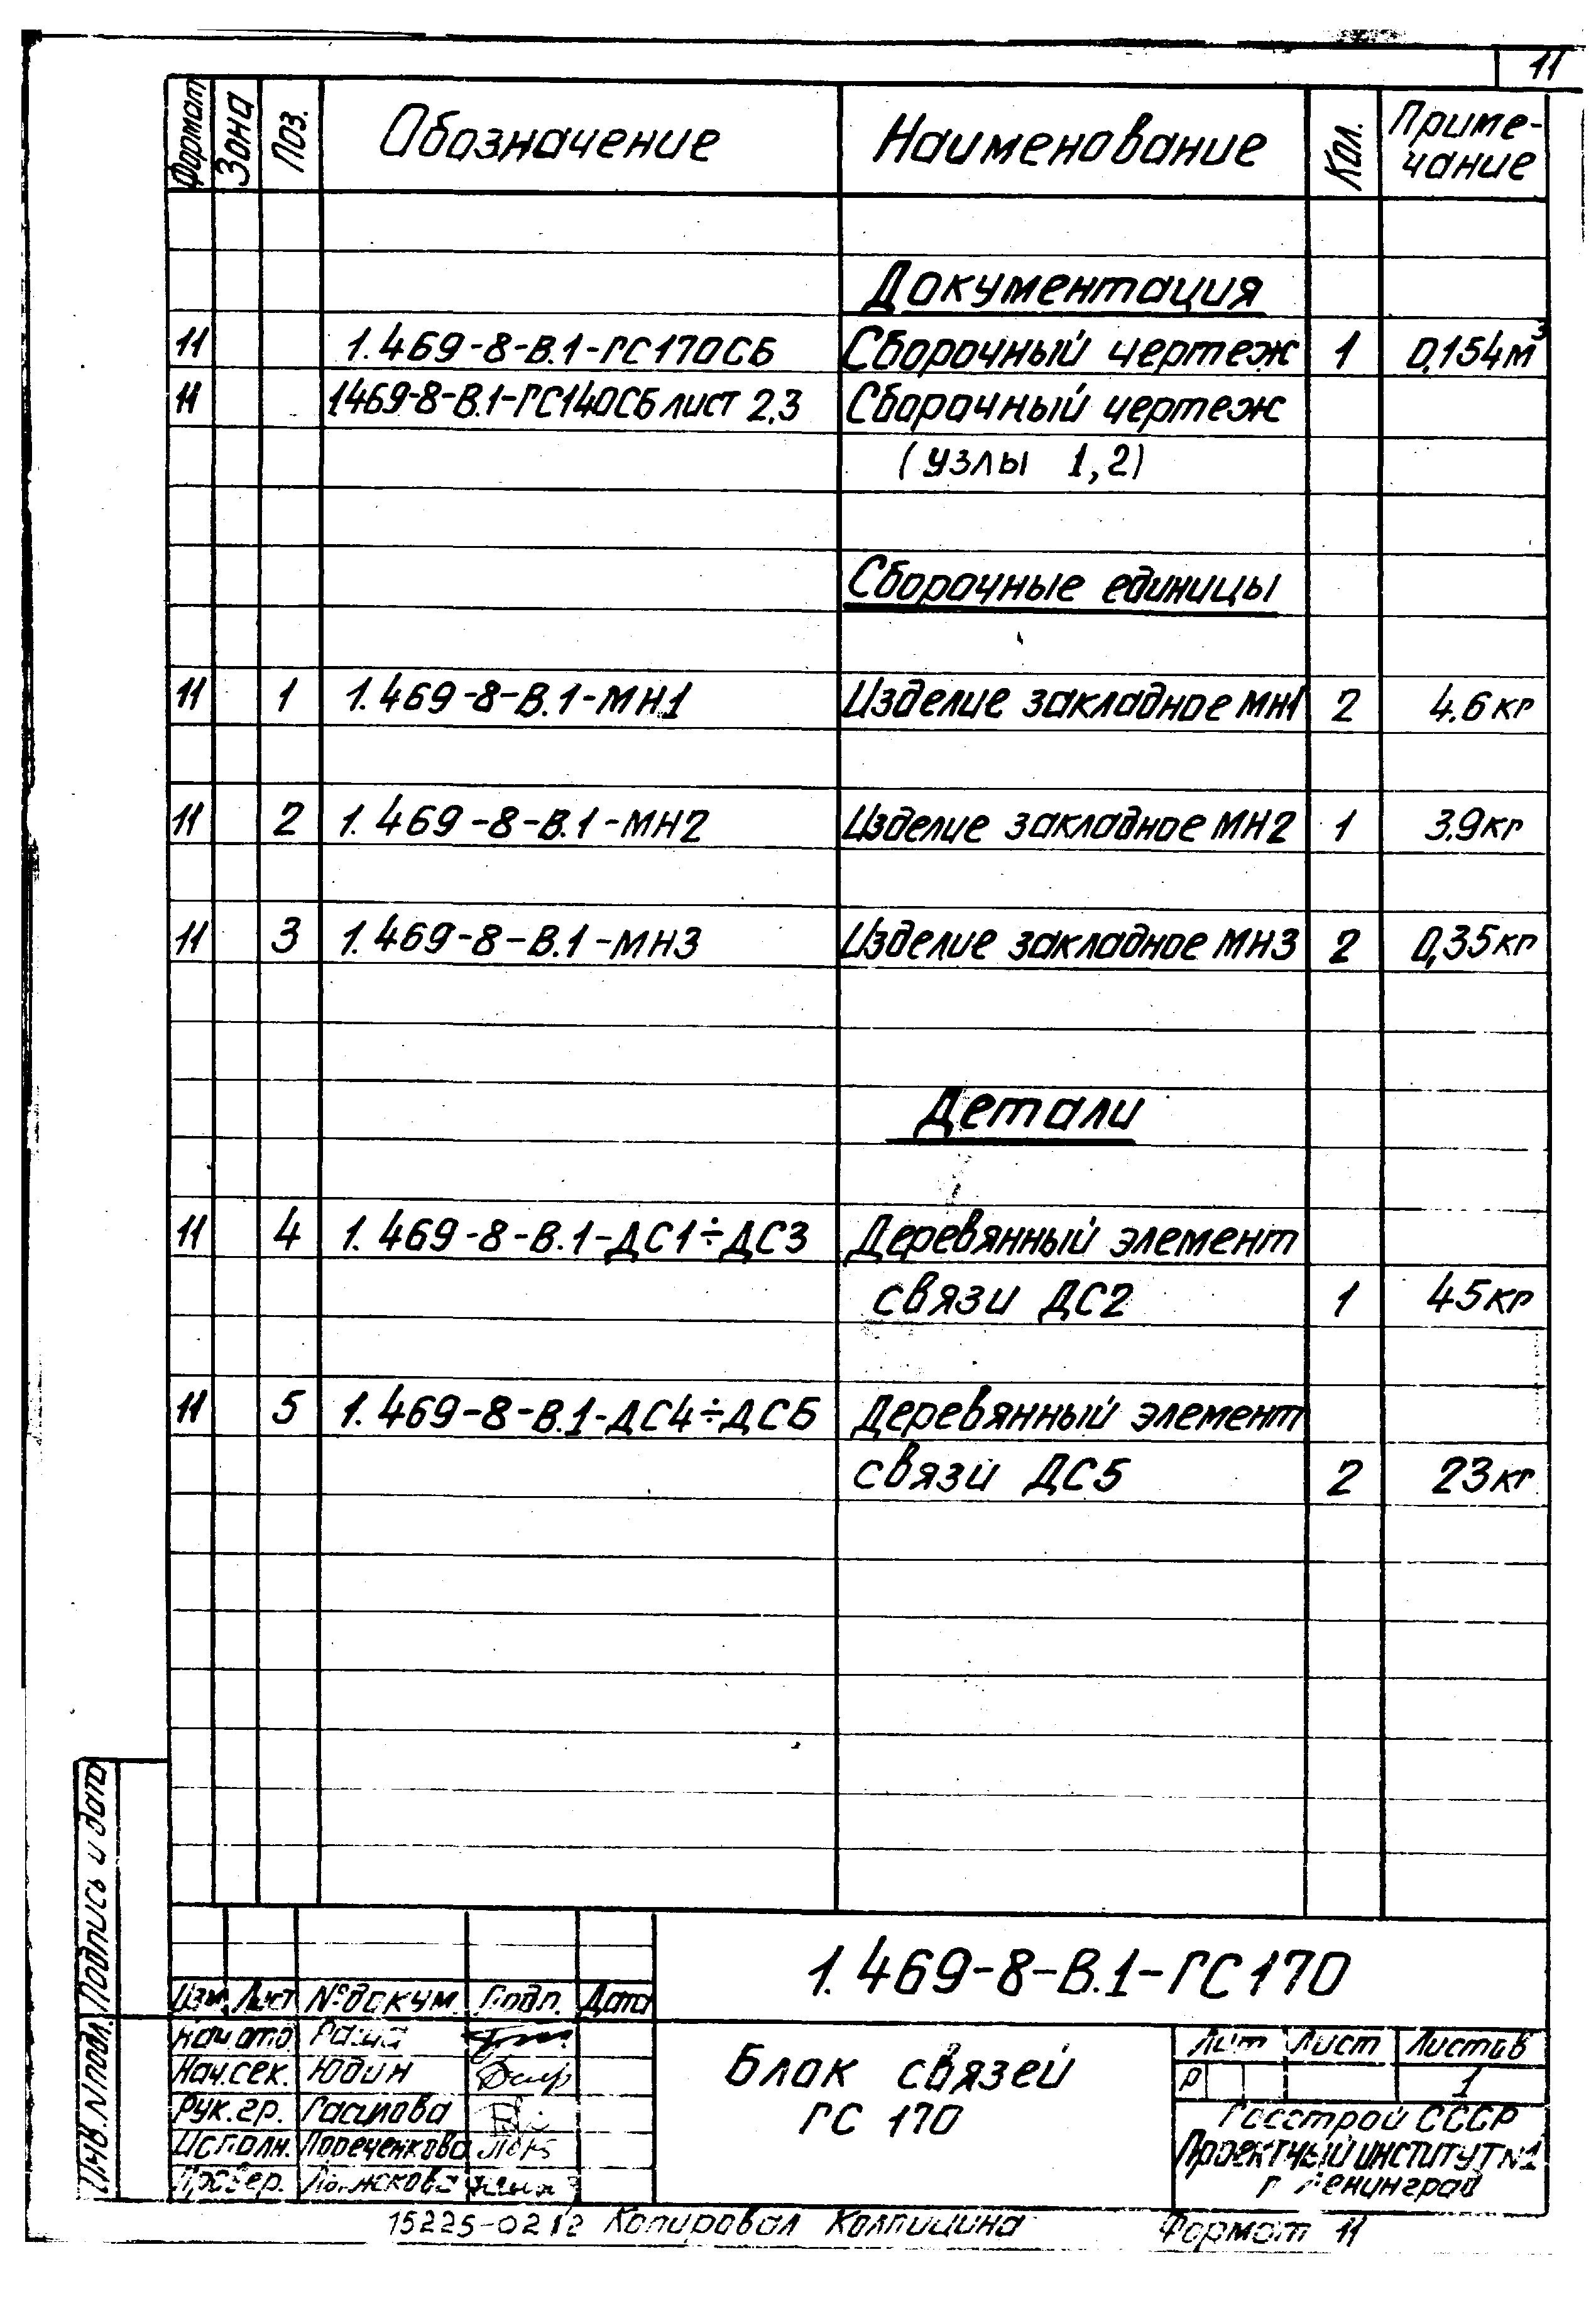 11
Формат Зона Поз. Обозначение Наименование Кол. Приме-
чание
Документация
11 1.469-8-В.1-ГС170СБ Сборочный чертеж 1 0,154м³
11 1469-8-В.1-ГС140СБ лист 2,3 Сборочный чертеж
(узлы 1,2)
Сборочные единицы
11 1 1.469-8-В.1-МН1 Изделие закладное МН1 2 4.6кг
11 2 1.469-8-В.1-МН2 Изделие закладное МН2 1 3.9кг
11 3 1.469-8-В.1-МН3 Изделие закладное МН3 2 0,35кг
Детали
11 4 1.469-8-В.1-ДС1÷ДС3 Деревянный элемент
связи ДС2 1 45кг
11 5 1.469-8-В.1-ДС4÷ДС6 Деревянный элемент
связи ДС5 2 23кг
Подпись и дата
Инв.N подл.
1.469-8-В.1-ГС170
Изм Лист №докум. Подп. Дата
Нач.сек. Юдин
Рук.гр.
Исполн. Пореченкова
Провер.
Блок связей
ГС 170
Лит Лист Листов
Р 1
Госстрой СССР
Проектный институт №1
г. Ленинград
15225-02 12 Копировал Колпицина Формат 11